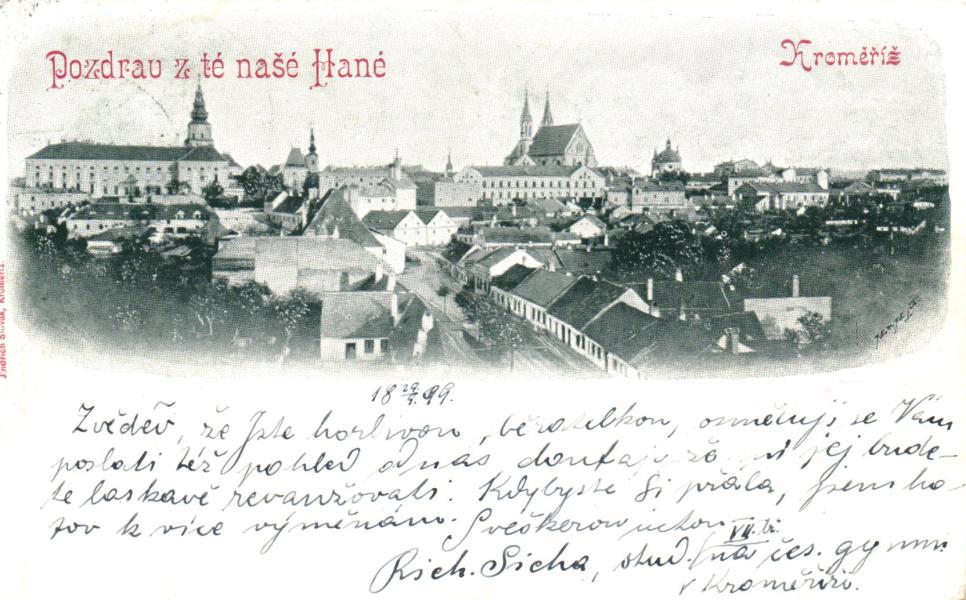 Pozdrav z té naší Hané
Kroměříž
Jndřich Slovák, Kroměříž.
18 29/9. 99.
Zvěděv, že Jste horlivou sběratelkou, osměluji se Vám
poslati též pohled od nás doufaje že mi jej bude-
te laskavě revanžovati. Kdybyste si přála, jsem ho-
tov k více výměnám. S veškerou úctou
Rich. Sicha, stud. VII. tř.
na čes. gymn.
v Kroměříži.